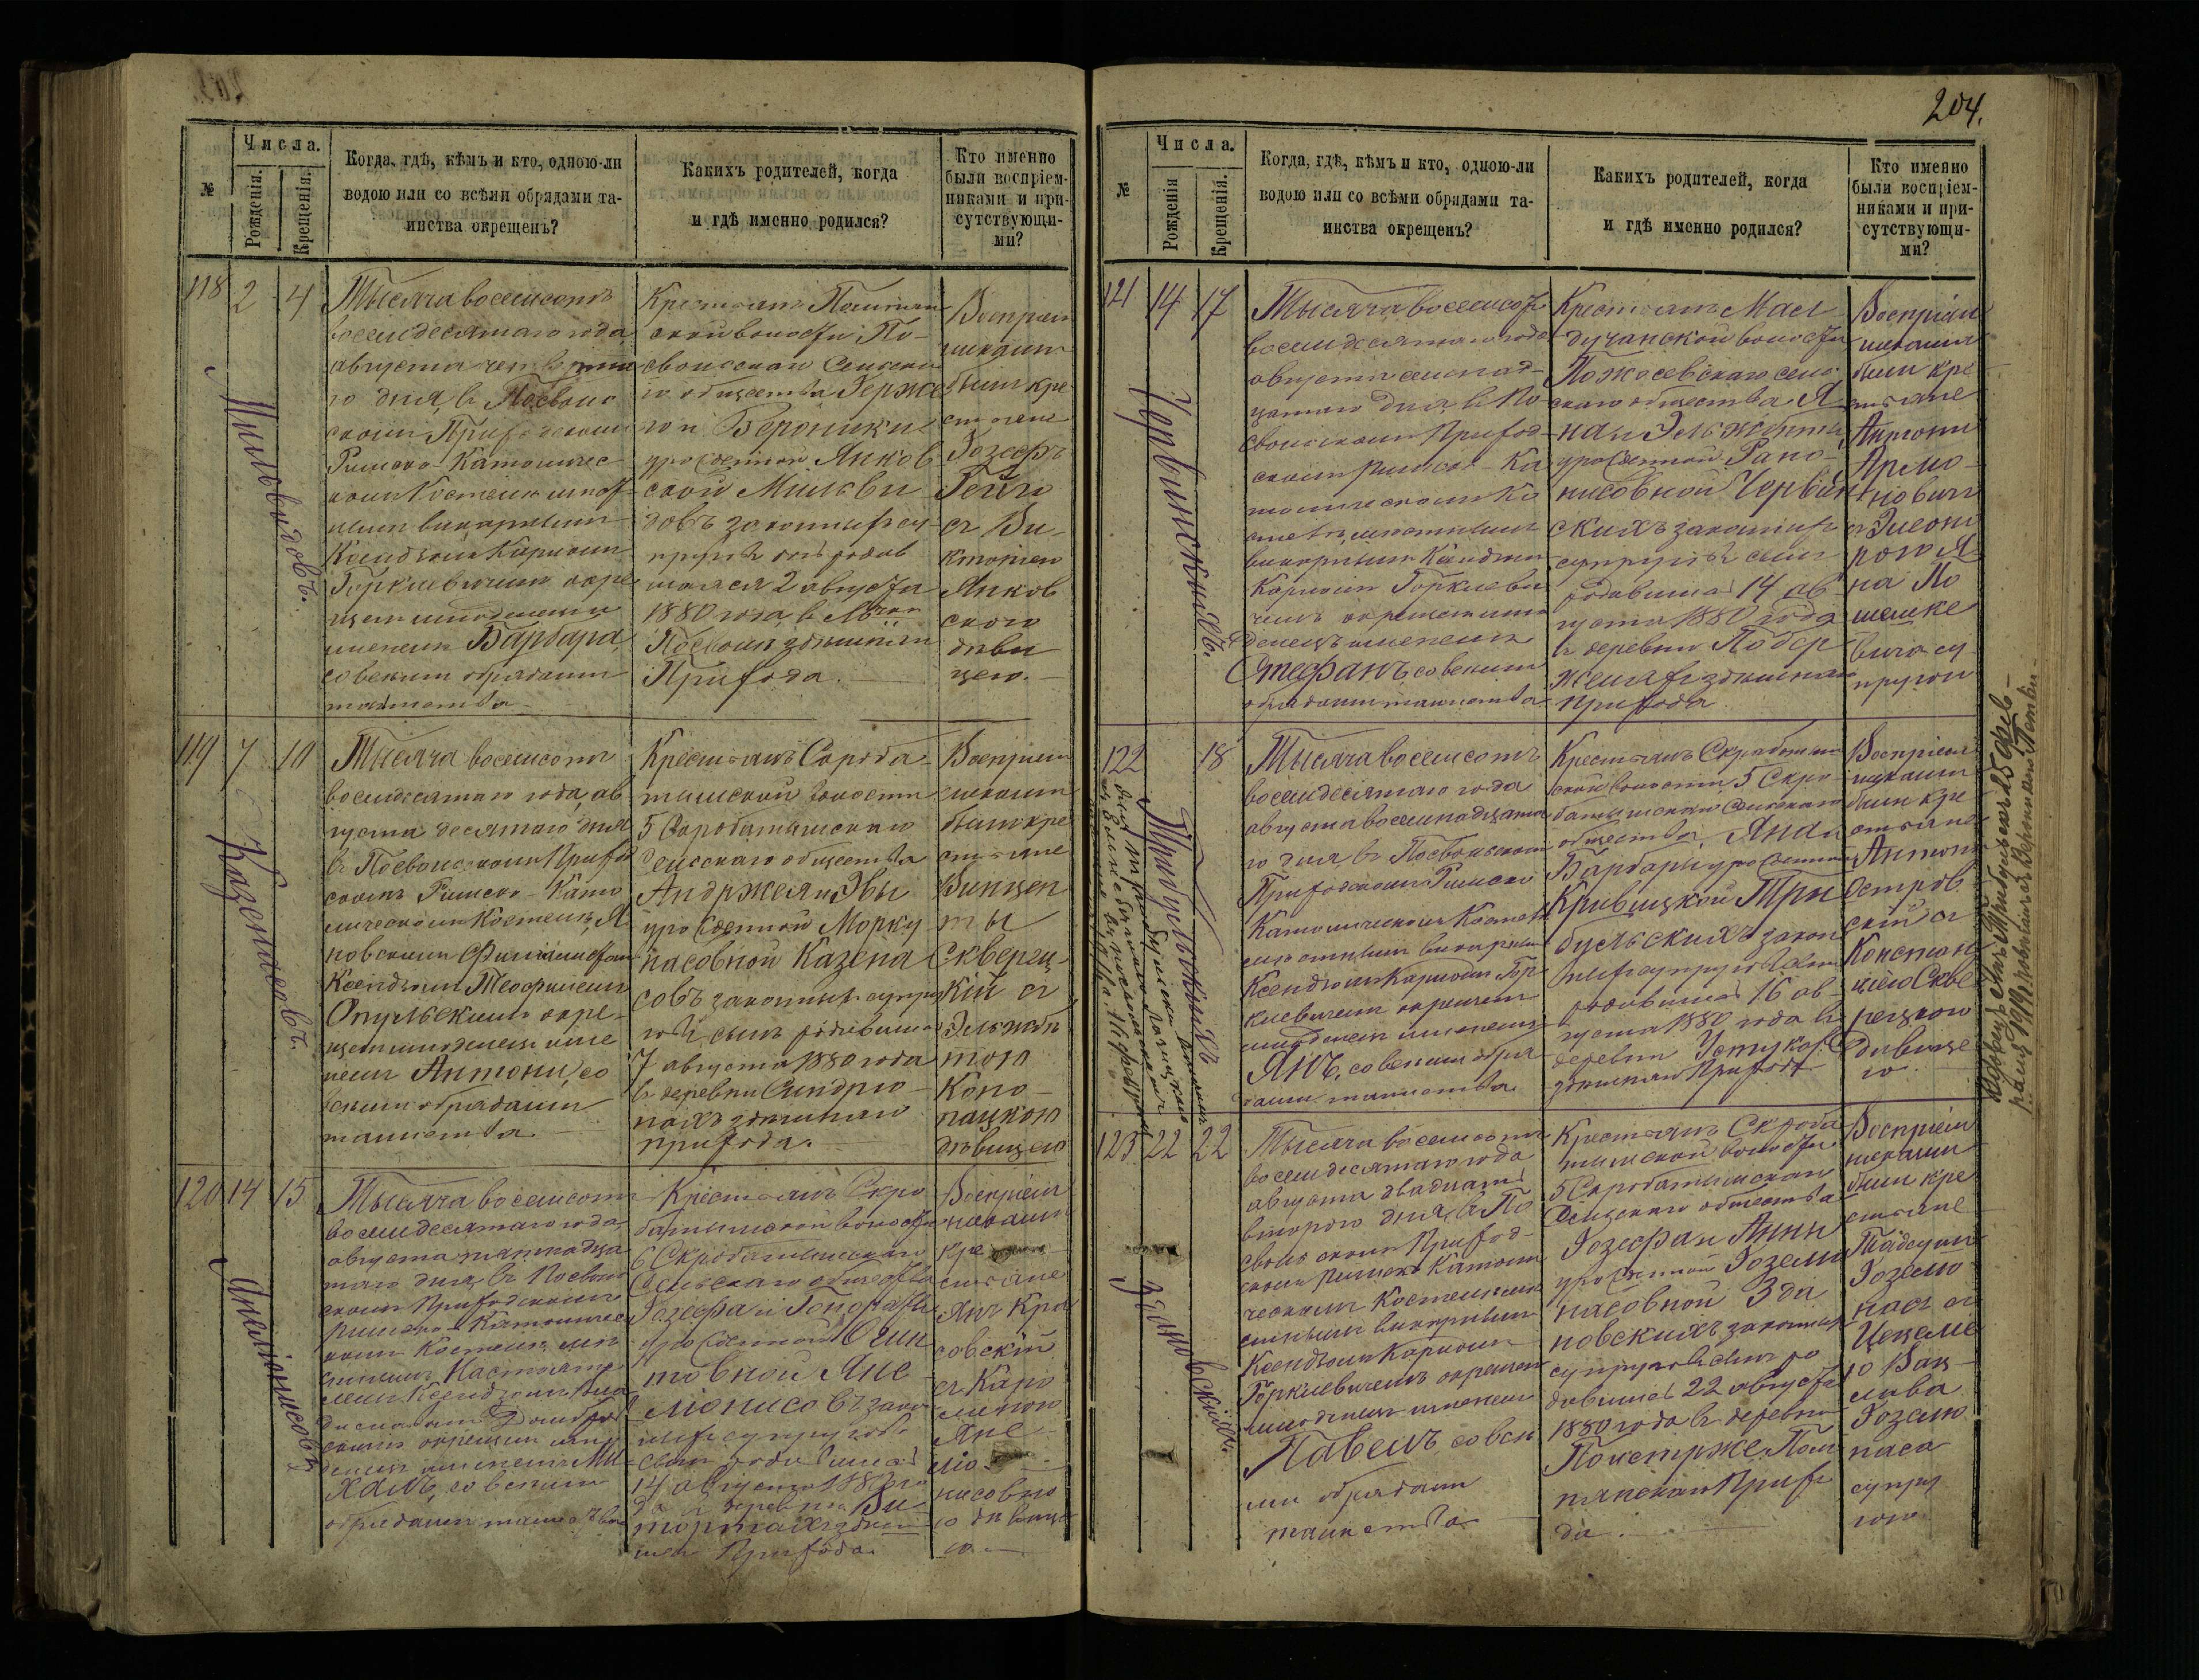 204.
№
Числа.
Рожденія.
Крещенія.
Когда, гдѣ, кѣмъ и кто, одною-ли
водою или со всѣми обрядами та-
инства окрещенъ?
Какихъ родителей, когда
и гдѣ именно родился?
Кто именно
были воспріем-
никами и при-
сутствующи-
ми?
118 2 4
Тысяча восемьсотъ
восемьдесятаго года
августа четверта
го дня, въ Посволь
скомъ Приходскомъ
Римско-Католичес
комъ Костелѣ
викарнымъ
Ксендзомъ Каролемъ
Горкиевичемъ окре
щенъ младенецъ
именемъ Барбара,
со всѣми обрядами
таинства
Крестьянъ
ской волости По-
свольскаго Сельска
го общества Герже
го и Вероники
урожденной Янков
ской Милови
довъ законныхъ су-
пруговъ дочь родив
шаяся 2 августа
1880 года въ
Посволь здѣшняго
Прихода.
Воспріем
никами
были кре
стьяне
Іозефъ
Гейго
съ Ви-
кторіею
Янков
скою
дѣви
цею.
119 7 10
Казенасовъ.
Тысяча восемьсотъ
восемьдесятаго года, ав
густа десятаго дня
въ Посвольскомъ Приход
скомъ Римско-Като
лическомъ Костелѣ, Я
новскимъ Филіалистомъ
Ксендзомъ Теофилемъ
Опульскимъ окре-
щенъ младенецъ име
немъ Антони, со
всѣми обрядами
таинства.
Крестьянъ Скроба-
тишской волости
5 Скробатышскаго
Сельскаго общества
Андржея и Эвы
урожденной Морку
насовной Казена
совъ законныхъ супру
говъ, сынъ родившійся
7 августа 1880 года
въ деревни Синдрю
нахъ здѣшняго
прихода.
Воспріем
никами
были кре
стьяне
Винцен
ты
Скверец-
кій съ
Эльжбѣ
тою
Коно-
пацкою
дѣвицею
120 14 15
Тысяча восемьсотъ
восемьдесятаго года,
августа пятнадца
таго дня, въ Посволь
скомъ Приходскомъ
Римско-Католичес
комъ Костелѣ,
Настояте
лемъ Ксендзомъ Вла
диславомъ Домбров
скимъ окрещенъ мла
денецъ именемъ Ми
халъ, со всѣми
обрядами таинства
Крестьянъ Скро
батишской волости
6 Скробатышскаго
Сельскаго общества
Іозефа и Гонораты
урожденной Юцин
товной Яне
ліонисовъ закон
ныхъ супруговъ
сынъ родившійся
14 августа 1880 го
да въ деревни Ви
торптахъ здѣш
няго Прихода.
Воспріем
никами
кре
стьяне
Янъ Кра
совскій
съ Каро
линою
Яне
ліо-
нисовно
ю дѣвице
ю.
№
Числа.
Рожденія
Крещенія.
Когда, гдѣ, кѣмъ и кто, одною-ли
водою или со всѣми обрядами та-
инства окрещенъ?
Какихъ родителей, когда
и гдѣ именно родился?
Кто именно
были воспріем-
никами и при-
сутствующи-
ми?
121 14 17
Червинскихъ.
Тысяча восемьсотъ
восемьдесятаго года
августа семнад-
цатаго дня, въ По
свольскомъ Приход-
скомъ Римско-Ка
толическомъ Ко
стелѣ, мѣстнымъ
викарнымъ Ксендзомъ
Каролемъ Горкиеви
чемъ окрещенъ мла
денецъ именемъ
Стефанъ со всѣми
обрядами таинства
Крестьянъ
дучанской волости
Пожосевскаго сель
скаго общества Я
на и Эльжбѣты
урожденной Рано-
нисовной Червин
скихъ законныхъ
супруговъ сынъ
родившійся 14 ав
густа 1880 года
въ деревни Побер
желяхъ здѣшняго
прихода
Воспріем
никами
были кре
стьяне
Антони
Ярмо-
новичъ
съ Элеоно
рою Я
на По
шешке
вича су
пругою
122 18
Трибульскихъ
Тысяча восемьсотъ
восемьдесятаго года
августа восемнадцата
го дня, въ Посвольскомъ
Приходскомъ Римско
Католическомъ Костелѣ
мѣстнымъ викарнымъ
Ксендзомъ Каролемъ Гор
киевичемъ окрещенъ
младенецъ именемъ
Янъ, со всѣми обря
дами таинства.
Крестьянъ Скробатыш
ской волости 5 Скро-
батышскаго Сельскаго
общества, Яна и
Барбары урожденной
Кривицкой Три
бульскихъ закон
ныхъ супруговъ сынъ
родившійся 16 ав-
густа 1880 года въ
деревни Устукахъ
здѣшняго Прихода
Воспріем
никами
были кре
стьяне
Антони
Остров
скій съ
Констан
ціею Скве
рецкою
дѣвице
ю.
123 22 22
Здановскихъ.
Тысяча восемьсотъ
восемьдесятаго года
августа двадцать
втораго дня, въ По
свольскомъ Приход-
скомъ Римско Католи
ческомъ Костелѣ мѣ
стнымъ викарнымъ
Ксендзомъ Каролемъ
Горкиевичемъ окрещенъ
младенецъ именемъ
Павелъ, со всѣ
ми обрядами
таинства
Крестьянъ Скроба
тишской волости
5 Скробатышскаго
Сельскаго общества
Іозефа и Анны
урожденной Іозелю
насовной Зда
новскихъ законныхъ
супруговъ сынъ ро
дившійся 22 августа
1880 года въ деревни
Приха
да.
Воспріем
никами
были кре
стьяне
Тадеушъ
Іозелю
насъ съ
Цецилі
ю Вац-
лава
Іозелю
наса
супру
гою.